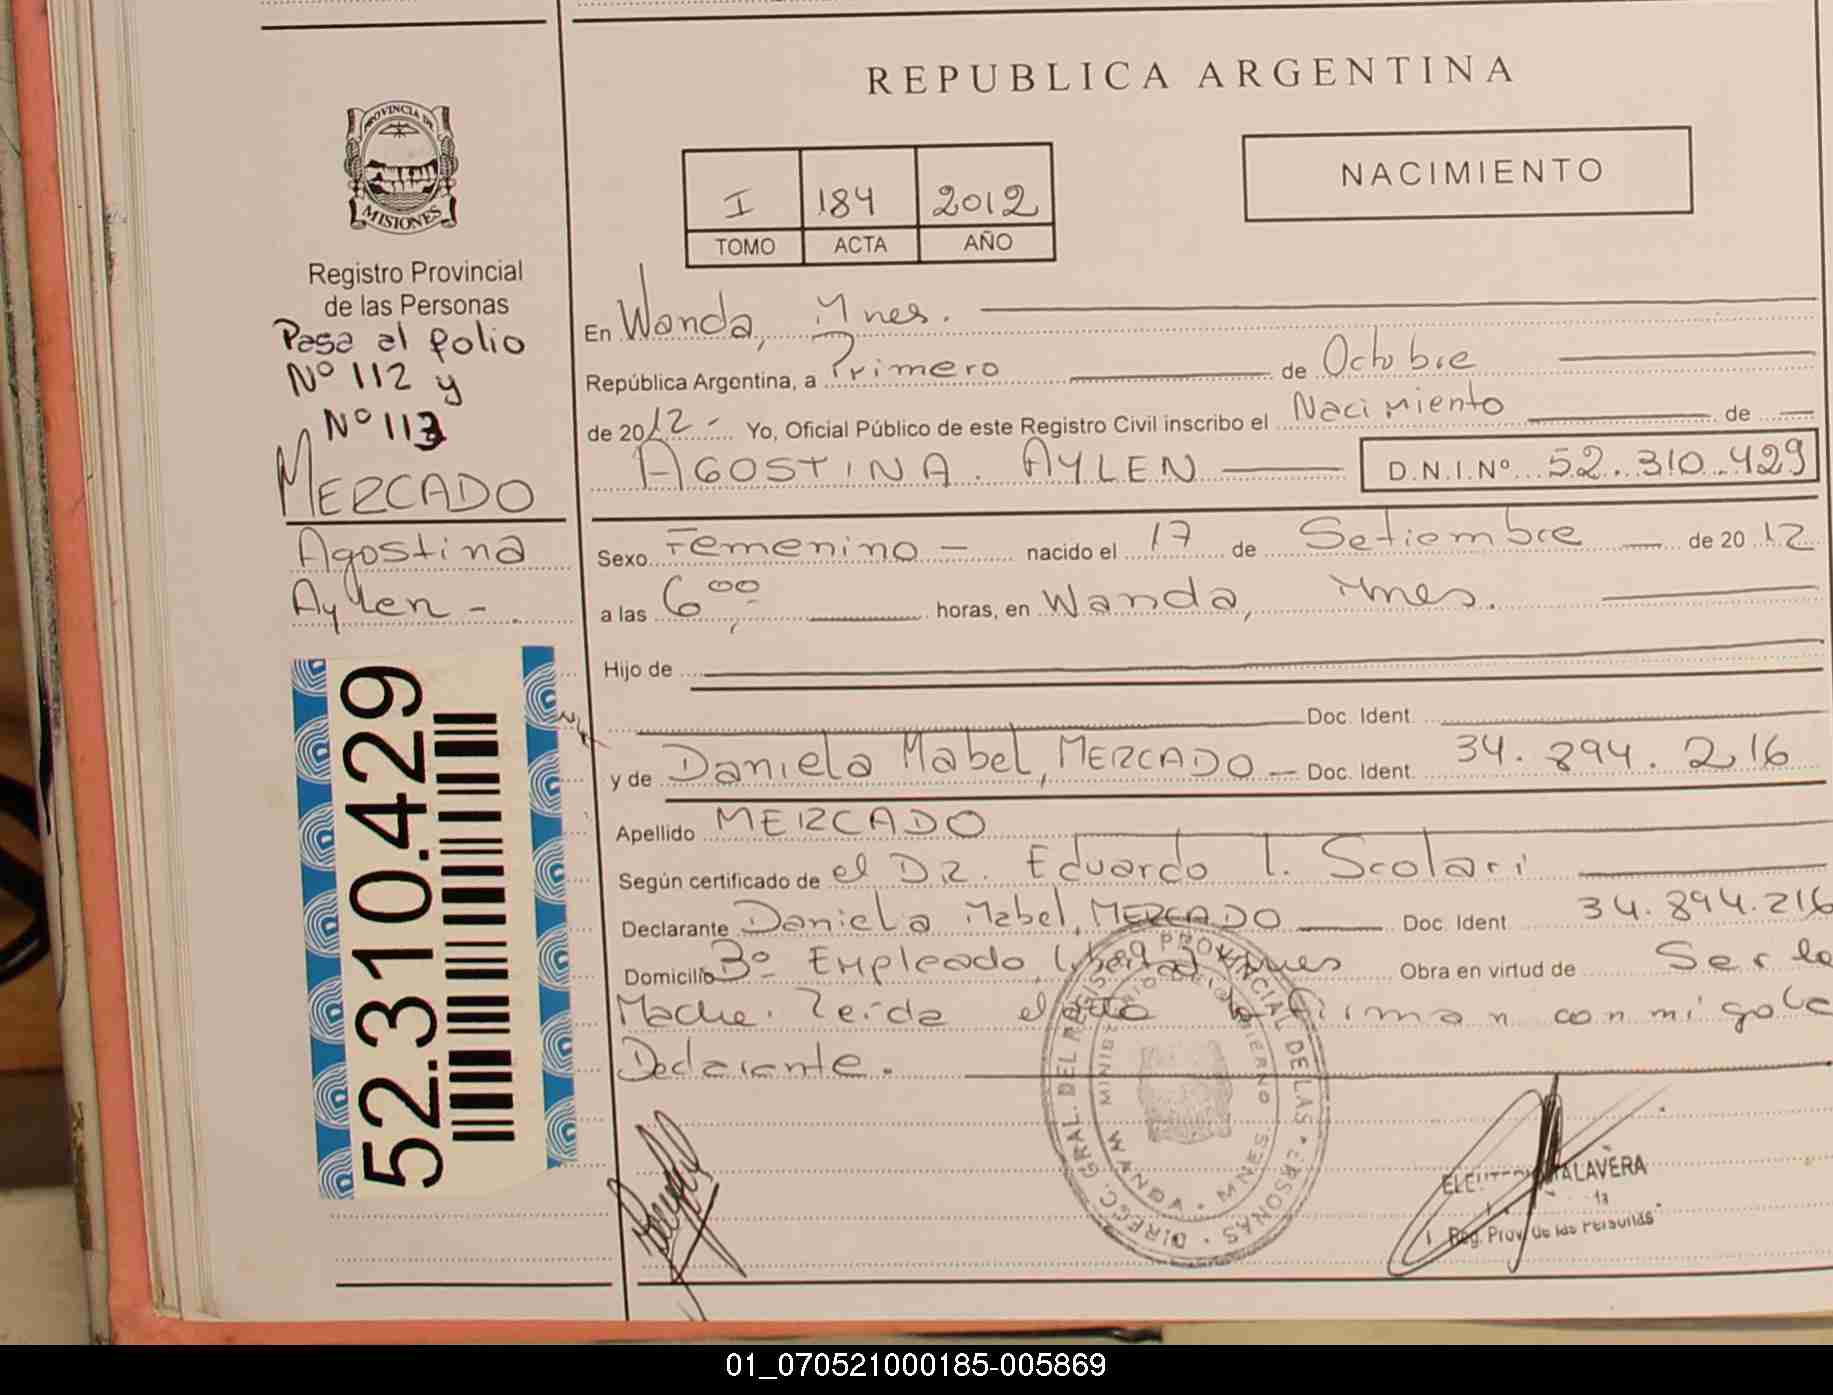 REPUBLICA ARGENTINA
PROVINCIA DE
MISIONES
Registro Provincial
de las Personas
Pasa al folio
Nº 112 y
Nº 113
MERCADO
Agostina
Aylen -
52.310.429
I 184 2012
TOMO ACTA AÑO
NACIMIENTO
En Wanda, Mnes.
República Argentina, a Primero de Octubre
de 2012 - Yo, Oficial Público de este Registro Civil inscribo el Nacimiento de
AGOSTINA AYLEN D.N.I.Nº 52.310.429
Sexo Femenino - nacido el 17 de Setiembre de 2012
a las 6,00 horas, en Wanda, Mnes.
Hijo de
Doc. Ident.
y de Daniela Mabel, MERCADO - Doc. Ident. 34.894.216
Apellido MERCADO
Según certificado de el DR. Eduardo I. Scolari
Declarante Daniela Mabel, MERCADO Doc. Ident 34.894.216
Domicilio 3º Empleado, Libertad Mnes Obra en virtud de Ser la
Madre. Leída el acta la firman conmigo la
Declarante.
DIRECC. GRAL. DEL REGISTRO PROVINCIAL DE LAS PERSONAS
MINISTERIO DE GOBIERNO
WANDA - MNES
TALAVERA
Reg. Prov. de las Personas
01_070521000185-005869